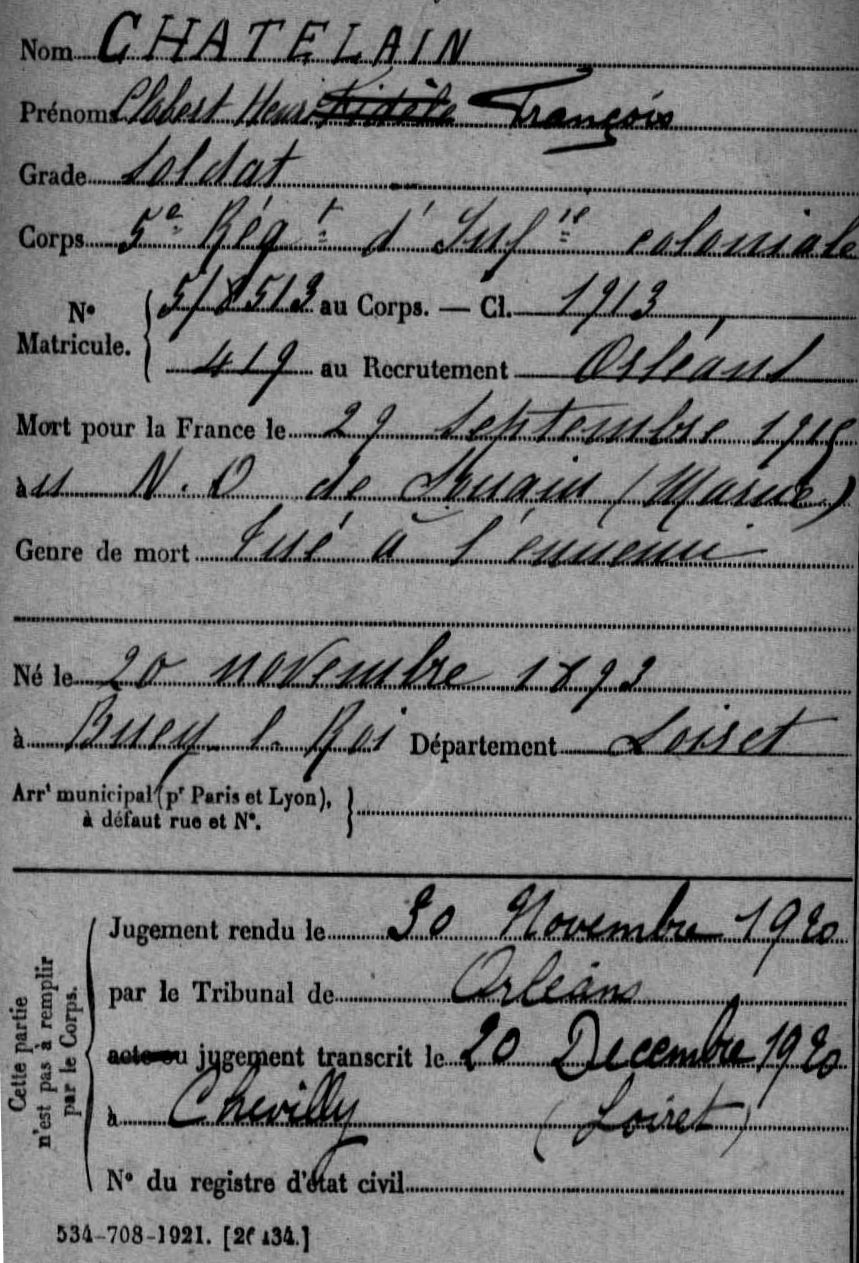 Nom CHATELAIN
Prénoms Clabert Henri Fidèle François
Grade Soldat
Corps 5e Régt d'Infie coloniale
N° Matricule. 5/8513 au Corps. — Cl. 1913
419 au Recrutement Orléans
Mort pour la France le 29 Septembre 1915
à N.O de Souain (Marne)
Genre de mort Tué à l'ennemi
Né le 20 novembre 1893
à Bucy l. Roi Département Loiret
Arrt municipal (pr Paris et Lyon),
à défaut rue et N°.
Cette partie
n'est pas à remplir
par le Corps.
Jugement rendu le 30 Novembre 1920
par le Tribunal de Orléans
acte ou jugement transcrit le 20 Decembre 1920
à Chevilly (Loiret)
N° du registre d'état civil
534-708-1921.